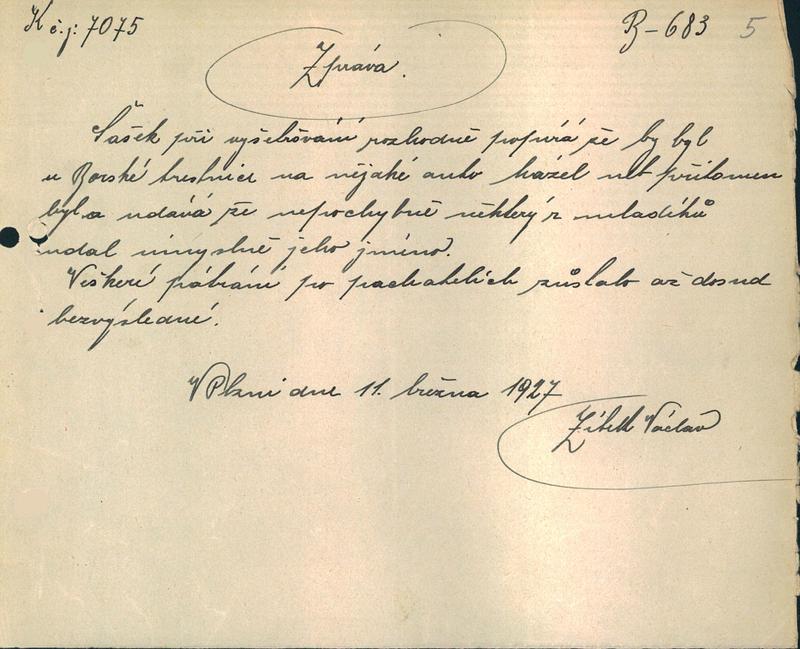 K č.j: 7075
B-683 5
Zpráva.
Sašek při vyšetřování rozhodně popírá že by byl
u Borské trestnice na nějaké auto házel neb přítomen
byl a udává že nepochybně některý z mladíků
udal úmyslně jeho jméno.
Veškeré pátrání po pachatelích zůstalo až dosud
bezvýsledné.
V Plzni dne 11. března 1927
Zítek Václav